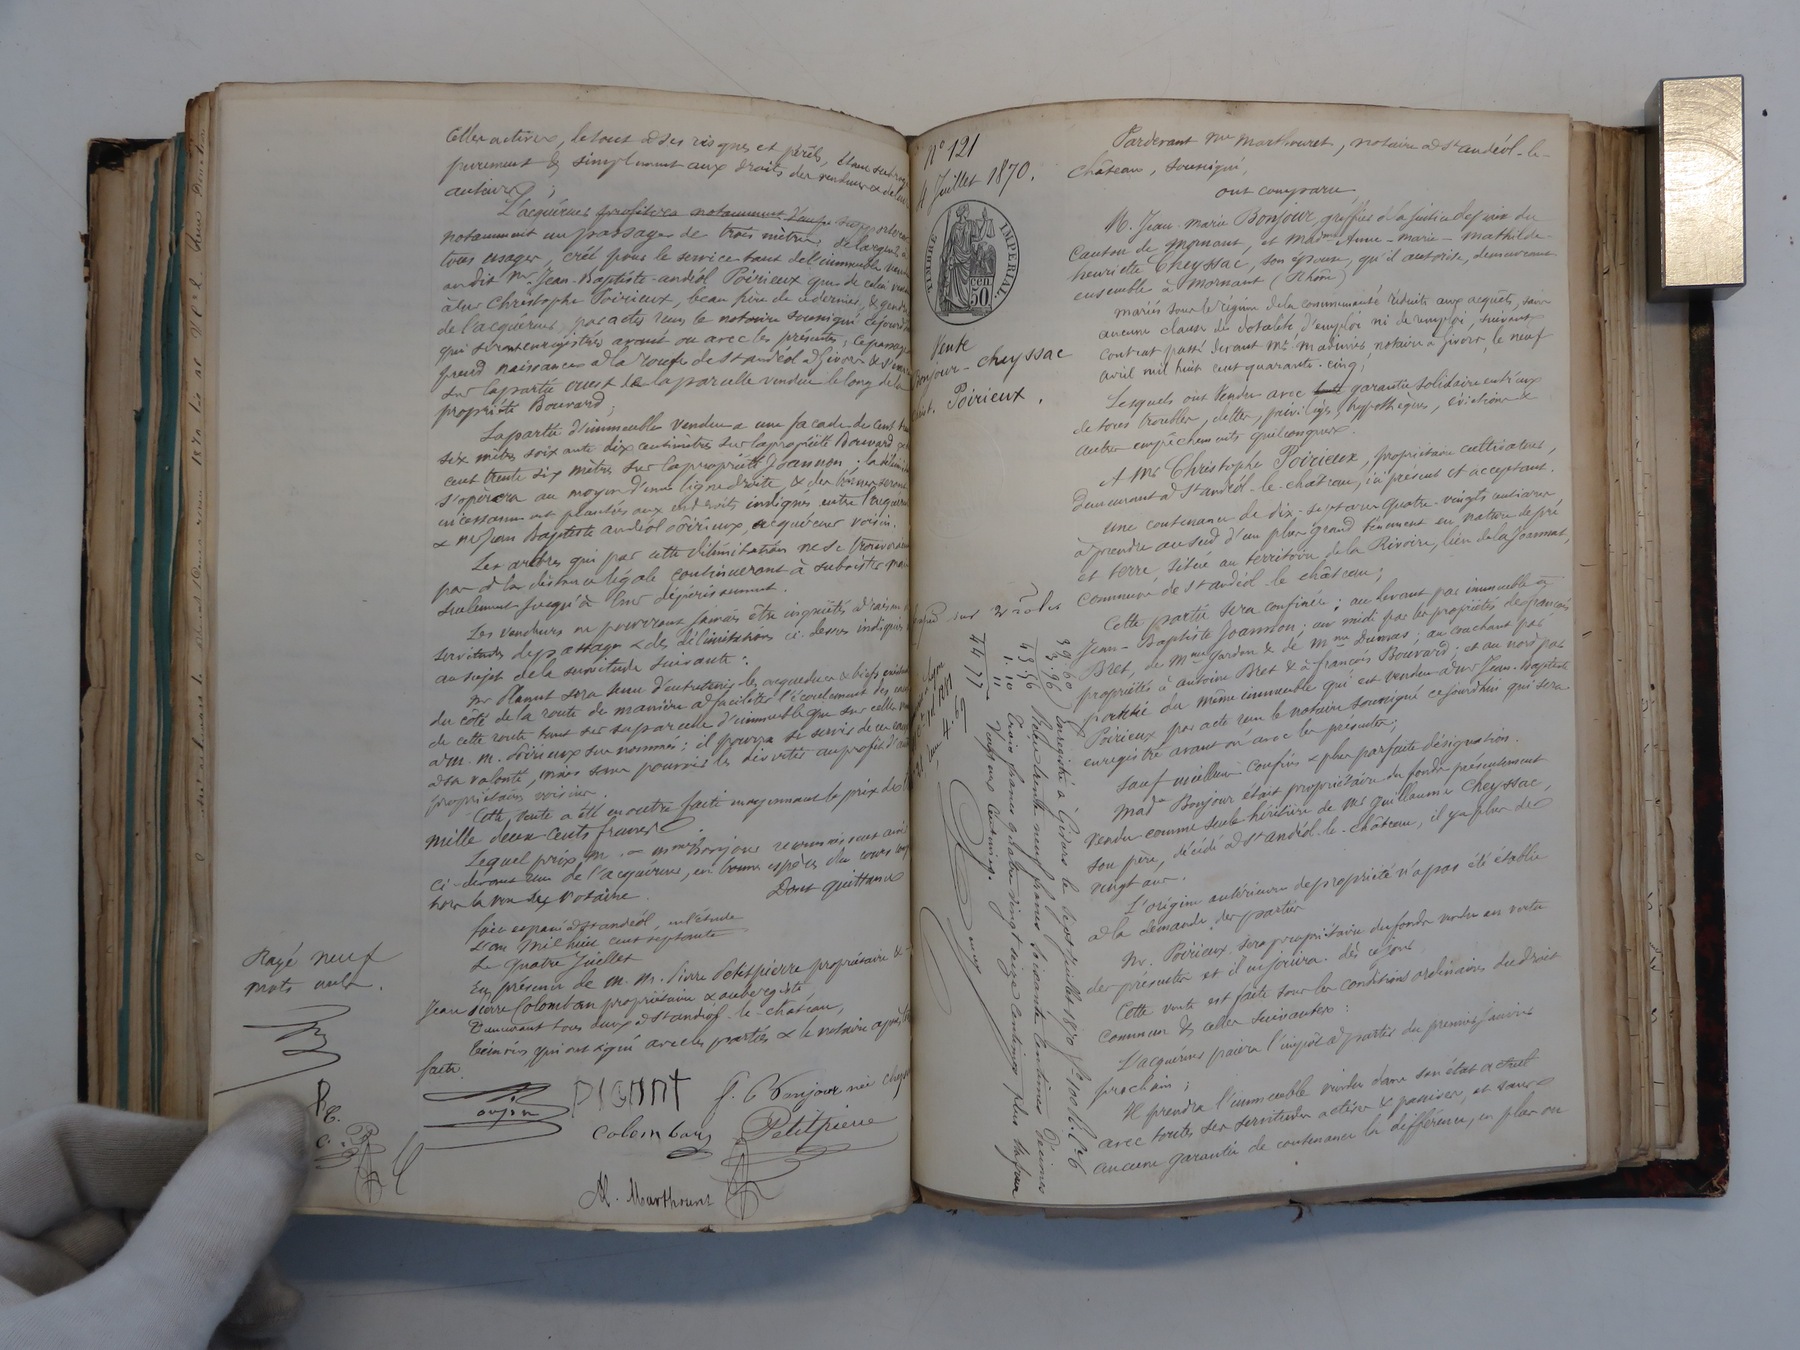 celles actives, le tout à ses risques et périls, étant subrogé
purement & simplement aux droits des vendeurs & de leurs
auteurs;
L'acquéreur profitera notamment d'un passage
notamment un passage de trois mètres de largeur à
tous usages, créé pour le service tant de l'immeuble vendu
audit Mr Jean-Baptiste-andéol Poirieux que de celui vendu
à Christophe Poirieux, beau frère de ce dernier, & gendre
de l'acquéreur, par actes reçus le notaire soussigné cejourd'hui
qui seront enregistrés avant ou avec les présentes; ce passage
prend naissance à la route de St andéol à Givors &
sur la partie ouest de la parcelle vendue le long de la
propriété Bouvard;
La partie d'immeuble vendue a une façade de cent
six mètres soixante dix centimètres sur la propriété Bouvard
cent trente six mètres sur la propriété Joannon; la délimitation
s'opérera au moyen d'une ligne droite & des bornes seront
incessamment plantées aux endroits indiqués entre l'acquéreur
& Mr Jean Baptiste andéol Poirieux, acquéreur voisin.
Les arbres qui par cette délimitation ne se trouveraient
pas à la distance légale continueront à subsister mais
seulement jusqu'à leur dépérissement.
Les vendeurs ne pourront jamais être inquiétés à raison
servitudes de passage & des délimitations ci-dessus indiquées
au sujet de la servitude suivante:
Mr Planut sera tenu d'entretenir les aqueducs & biefs
du côté de la route de manière à faciliter l'écoulement des eaux
de cette route tant sur sa parcelle d'immeuble que sur celle
à M. M. Poirieux susnommés; il pourra se servir de ces eaux
à sa volonté, mais sans pouvoir les dévier au profit d'
propriétaires voisins.
Cette vente a été en outre faite moyennant le prix de
mille deux cents francs
Lequel prix Mr & Mme Bonjour reconnaissent avoir
ci-devant reçu de l'acquéreur, en bonnes espèces du cours
hors la vue du notaire. Dont quittance
fait et passé à St andéol, en l'étude
L'an mil huit cent septante
Le quatre Juillet
En présence de M. M. Pierre Petitpierre propriétaire &
Jean Pierre Colomban propriétaire & aubergiste
Demeurant tous deux à St andéol-le-château,
témoins qui ont signé avec les parties & le notaire après
faite.
Rayé neuf
mots nuls.
Colomban
Petitpierre
M. Marthouret
N° 121
4 Juillet 1870.
TIMBRE IMPERIAL.
50 CEN
Vente
Bonjour-Cheyssac
Poirieux.
2 rôles
39.60
3.96
43.56
1.10
11
44 77
Enregistré à Givors le Juillet 1870
Reçu trente neuf francs soixante centimes Décimes
trois francs quatre vingt seize centimes plus
Vingt un centimes.
Pardevant Me Marthouret, notaire à St andéol-le-
château, soussigné,
ont comparu
M. Jean-marie Bonjour, greffier de la Justice de paix du
Canton de Mornant, et Made Anne-marie-mathilde-
henriette Cheyssac, son épouse, qu'il autorise, demeurant
ensemble à Mornant (Rhône)
mariés sous le régime de la communauté réduite aux acquêts, sans
aucune clause de dotalité d'emploi ni de remploi, suivant
contrat passé devant Me Madinier, notaire à Givors, le neuf
avril mil huit cent quarante-cinq;
Lesquels ont Vendu avec garantie solidaire entr'eux
de tous troubles, dettes, privilèges, hypothèques, évictions &
autres empêchements quelconques.
A Mr Christophe Poirieux, propriétaire cultivateur,
Demeurant à St andéol-le-château, ici présent et acceptant.
Une contenance de dix-sept ares quatre-vingts centiares,
à prendre au sud d'un plus grand ténement en nature de pré
et terre, située au territoire de la Rivoire, lieu de la Joannat,
Commune de St andéol-le château;
Cette partie sera confinée; au levant par immeuble à
Jean-Baptiste Joannon; au midi par les propriétés de françois
Bret, de Mme Jardon & de Mme Dumas; au couchant par
propriétés à antoine Bret & à françois Bouvard; et au nord par
partie du même immeuble qui est vendue à Mr Jean-Baptiste
Poirieux par acte reçu le notaire soussigné cejourd'hui qui sera
enregistré avant ou avec les présentes;
Sauf meilleurs confins & plus parfaite désignation.
Made Bonjour était propriétaire du fonds présentement
vendu comme seule héritière de Mr guillaume Cheyssac,
son père, décédé à St andéol-le-château, il y a plus de
vingt ans.
L'origine antérieure de propriété n'a pas été établie
à la demande des parties
Mr. Poirieux sera propriétaire du fonds vendu en vertu
des présentes et il en jouira dès ce jour
Cette vente est faite sous les conditions ordinaires du droit
commun & celles suivantes:
L'acquéreur paiera l'impôt à partir du premier Janvier
prochain;
Il prendra l'immeuble vendu dans son état actuel
avec toutes ses servitudes actives & passives, et sans
aucune garantie de contenance la différence, en plus ou